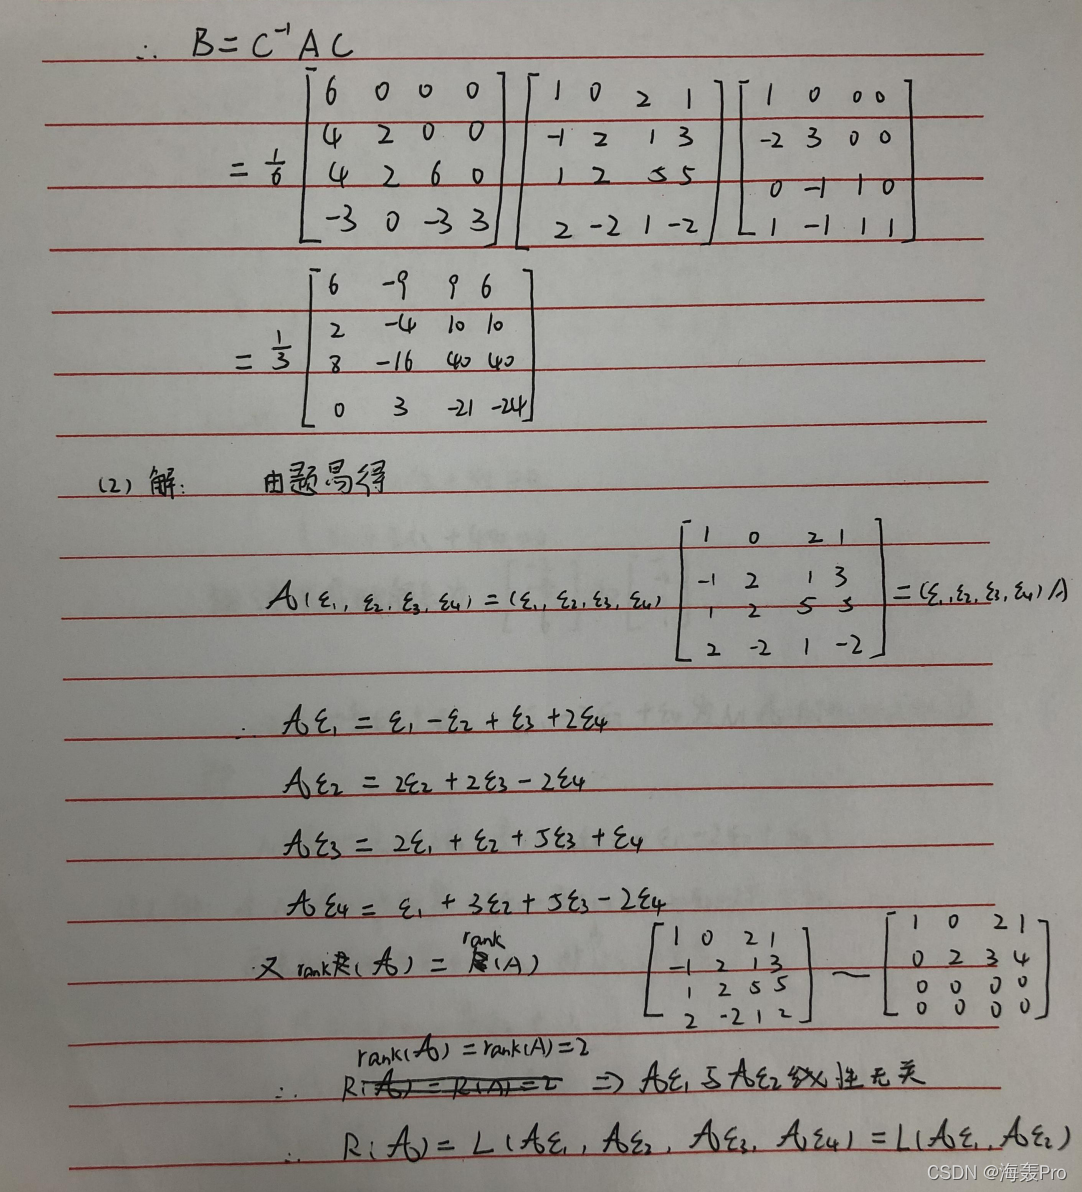 ∴ B = C⁻¹ A C
= 1/6 [6 0 0 0; 4 2 0 0; 4 2 6 0; -3 0 -3 3] [1 0 2 1; -1 2 1 3; 1 2 5 5; 2 -2 1 -2] [1 0 0 0; -2 3 0 0; 0 -1 1 0; 1 -1 1 1]
= 1/3 [6 -9 9 6; 2 -4 10 10; 8 -16 40 40; 0 3 -21 -24]
(2) 解: 由题易得
A(ε₁, ε₂, ε₃, ε₄) = (ε₁, ε₂, ε₃, ε₄) [1 0 2 1; -1 2 1 3; 1 2 5 5; 2 -2 1 -2] = (ε₁, ε₂, ε₃, ε₄) A
∴ Aε₁ = ε₁ - ε₂ + ε₃ + 2ε₄
Aε₂ = 2ε₂ + 2ε₃ - 2ε₄
Aε₃ = 2ε₁ + ε₂ + 5ε₃ + ε₄
Aε₄ = ε₁ + 3ε₂ + 5ε₃ - 2ε₄
又 rank(A) = rank(A) [1 0 2 1; -1 2 1 3; 1 2 5 5; 2 -2 1 2] ~ [1 0 2 1; 0 2 3 4; 0 0 0 0; 0 0 0 0]
rank(A) = rank(A) = 2
∴ R(A) = R(A) = 2 ⇒ Aε₁ 与 Aε₂ 线性无关
∴ R(A) = L(Aε₁, Aε₂, Aε₃, Aε₄) = L(Aε₁, Aε₂)
CSDN @海轰Pro